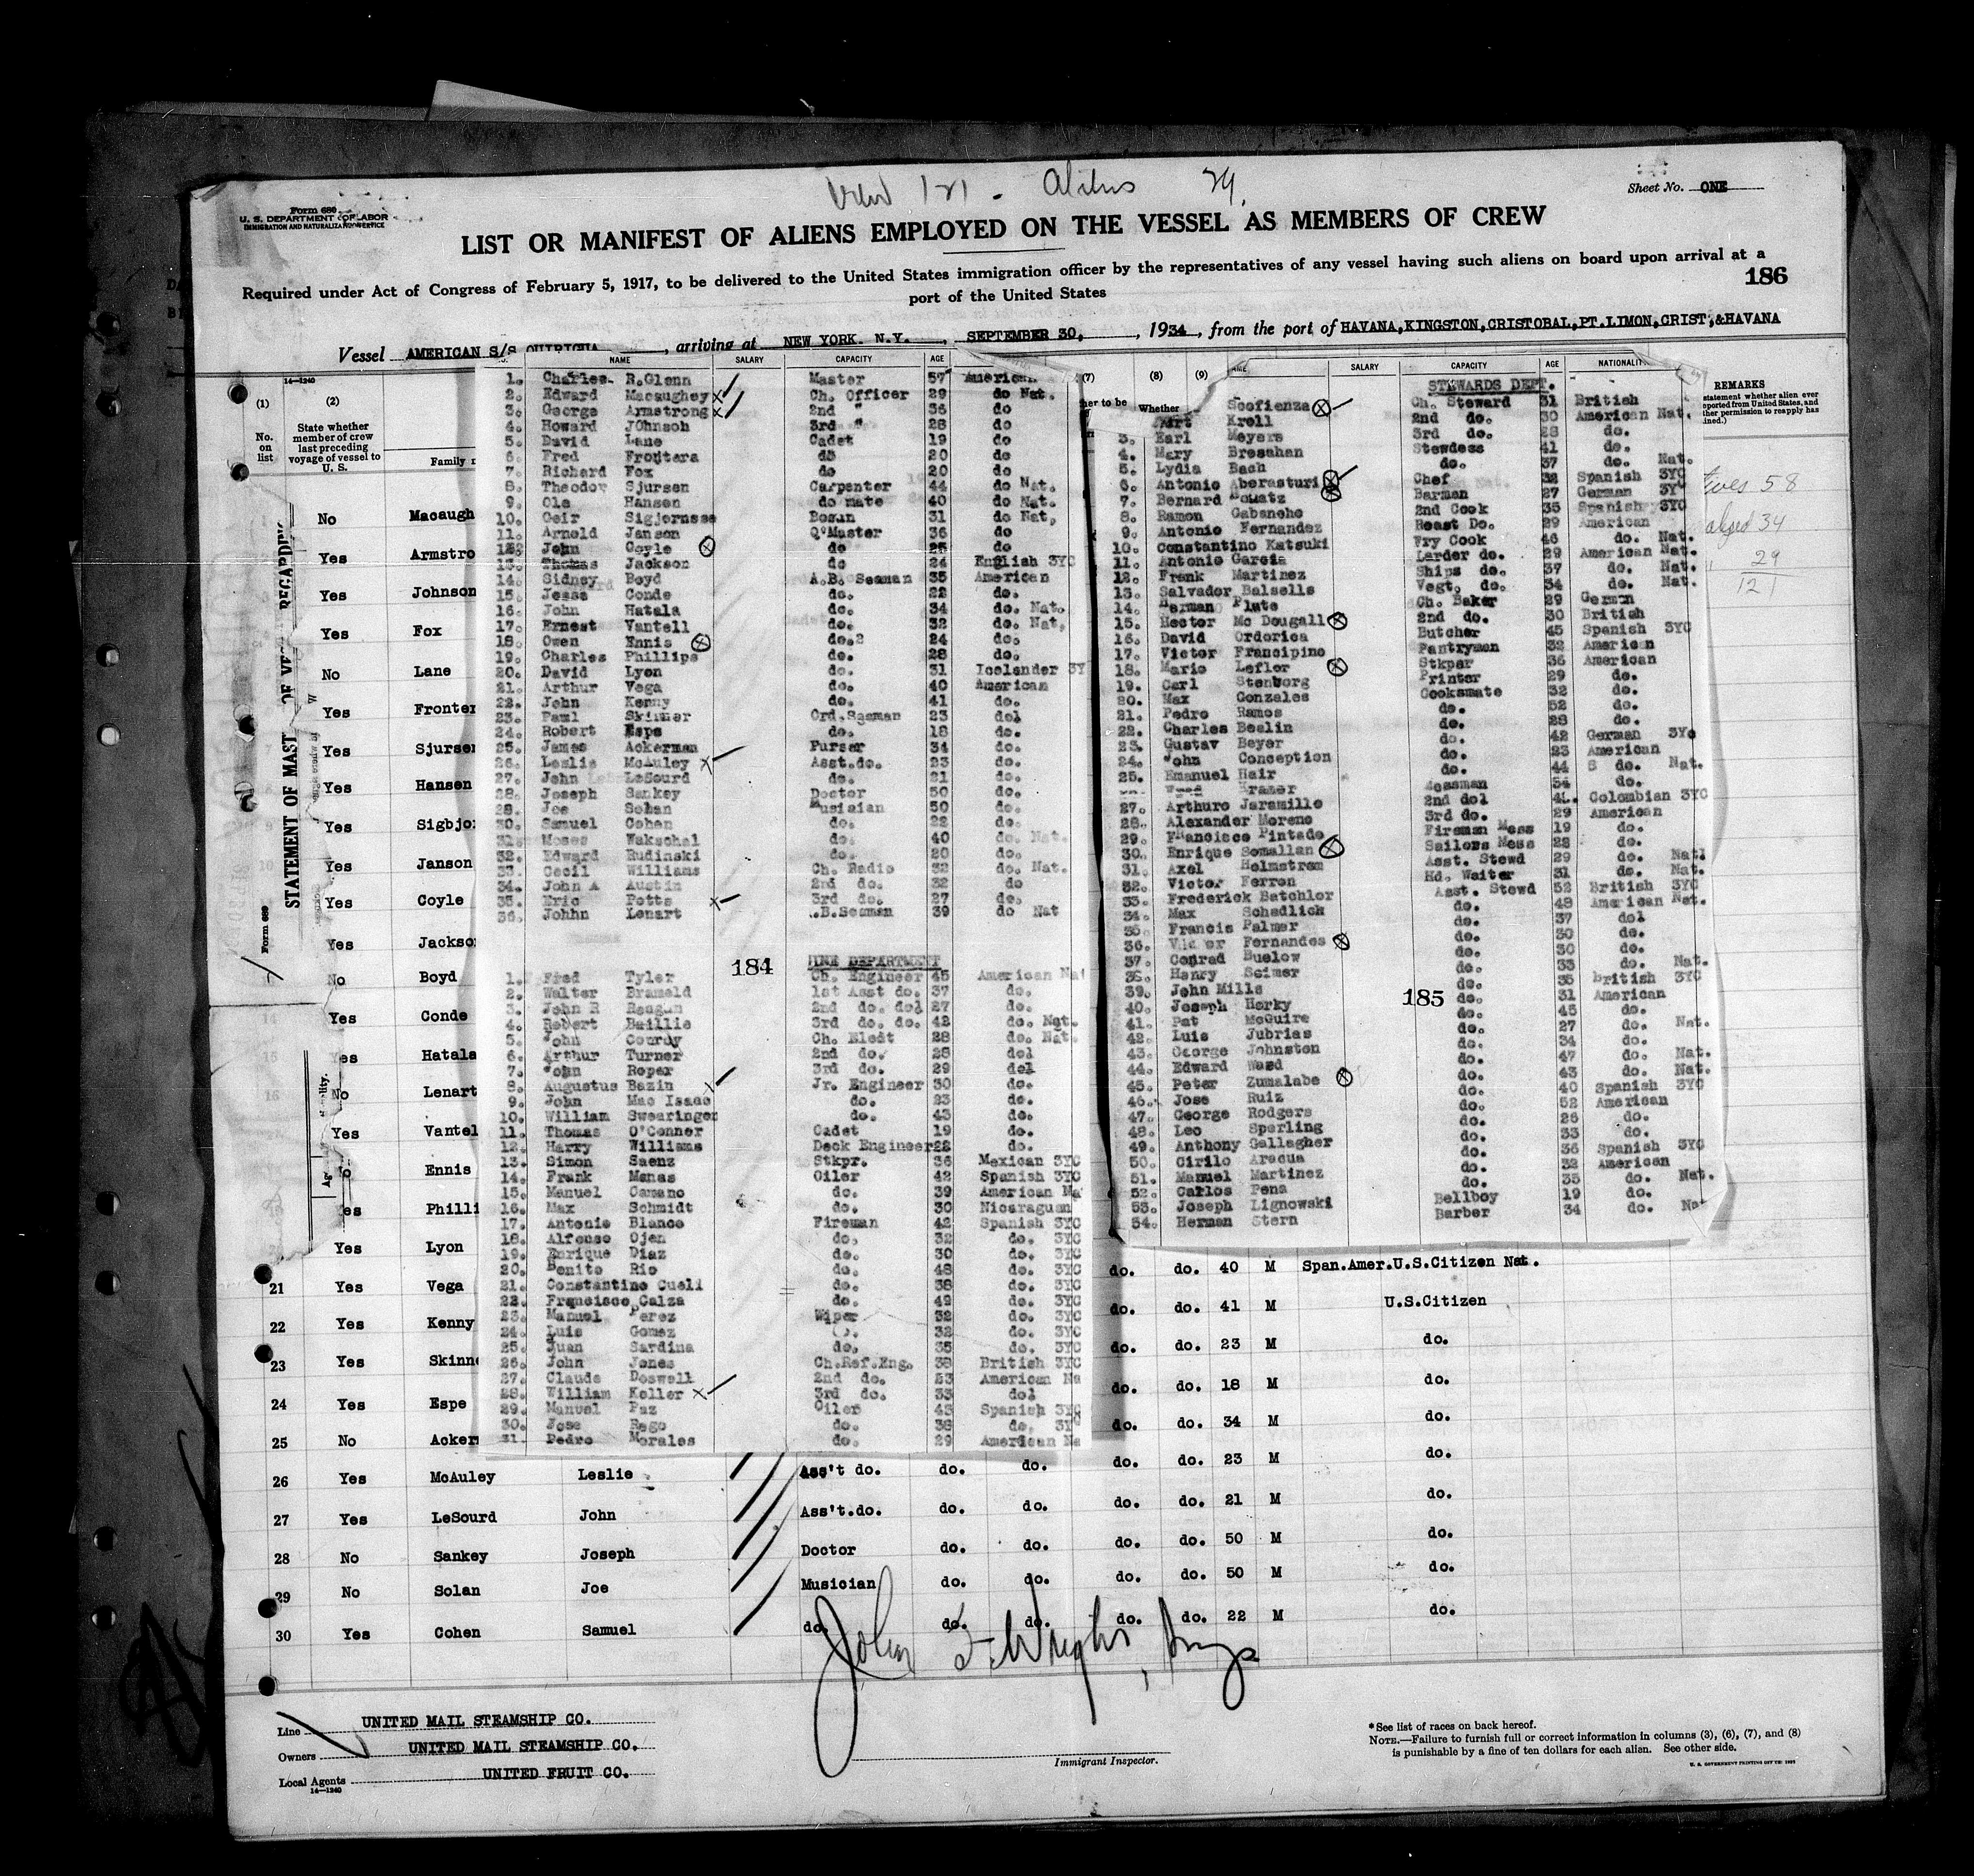 Form 680
U. S. DEPARTMENT OF LABOR
IMMIGRATION AND NATURALIZATION SERVICE
Aliens
Sheet No. ONE
LIST OR MANIFEST OF ALIENS EMPLOYED ON THE VESSEL AS MEMBERS OF CREW
Required under Act of Congress of February 5, 1917, to be delivered to the United States immigration officer by the representatives of any vessel having such aliens on board upon arrival at a
port of the United States
186
Vessel AMERICAN S/S QUIRIGUA, arriving at NEW YORK. N.Y., SEPTEMBER 30, 1934, from the port of HAVANA,KINGSTON,CRISTOBAL,PT.LIMON,CRIST,&HAVANA
14—1240
(1) (2)
No. on list
State whether member of crew last preceding voyage of vessel to U. S.
Family
No Macaugh
Yes Armstro
Yes Johnson
Yes Fox
No Lane
Yes Fronter
Yes Sjurse
Yes Hansen
Yes Sigbjo
Yes Janson
Yes Coyle
Yes Jackso
No Boyd
Yes Conde
Yes Hatala
No Lenart
Yes Vantel
No Ennis
Yes Philli
Yes Lyon
21 Yes Vega
22 Yes Kenny
23 Yes Skinn
24 Yes Espe
25 No Acker
STATEMENT OF MAST
OF VES
REGARDI
Form 689
NAME SALARY CAPACITY AGE
1. Charles R.Glenn Master 57 American
2. Edward Macaughey Ch. Officer 29 do Nat.
3. George Armstrong 2nd " 36 do
4. Howard JOhnson 3rd " 28 do
5. David Lane Cadet 19 do
6. Fred Frontera do 20 do
7. Richard Fox do 20 do
8. Theodor Sjursen Carpenter 44 do Nat.
9. Ole Hansen do mate 40 do Nat.
10. Geir Sigjornsse Bosun 31 do Nat,
11. Arnold Janson Q'Master 36 do
12. John Coyle do 25 do
13. Thomas Jackson do 24 English 3YC
14. Sidney Boyd A.B. Seaman 35 American
15. Jesse Conde do. 22 do.
16. John Hatala do. 34 do. Nat.
17. Ernest Vantell do. 32 do. Nat,
18. Owen Ennis do.2 24 do.
19. Charles Phillips do. 28 do.
20. David Lyon do. 31 Icelander 3Y
21. Arthur Vega do. 40 American
22. John Kenny do. 41 do.
23. Paul Skinner Ord.Seaman 23 dol
24. Robert Espe do. 18 do.
25. James Ackerman Purser 34 do.
26. Leslie McAuley Asst.do. 23 do.
27. John LeSourd do. 21 do.
28. Joseph Sankey Doctor 50 do.
28. Joe Sohan Musician 50 do.
30. Samuel Cohen do. 22 do.
31. Moses Wakschal do. 40 do. Nat.
32. Edward Rudinski do. 20 do.
33. Cecil Williams Ch. Radio 32 do. Nat.
34. John A Austin 2nd do. 32 do
35. Eric Potts 3rd do. 27 do.
36. Johhn Lenart .B.Seaman 39 do Nat
184
INE DEPARTMENT
1. Fred Tyler Ch. Engineer 45 American Nat
2. Walter Brameld 1st Asst do. 37 do.
3. John R Reagun 2nd do. dol 27 do.
4. Robert Baillie 3rd do. do. 42 do. Nat.
5. John Conroy Ch. Eledt 28 do. Nat.
6. Arthur Turner 2nd do. 28 dol
7. John Roper 3rd do. 29 dol
8. Augustus Bazin Jr. Engineer 30 do.
9. John Mac Isaac do. 23 do.
10. William Swearinger do. 43 do.
11. Thomas O'Conner Cadet 19 do.
12. Harry Williams Deck Engineer 22 do.
13. Simon Saenz Stkpr. 36 Mexican 3YC
14. Frank Manas Oiler 42 Spanish 3YC
15. Manuel Camano do. 39 American Na
16. Max Schmidt do. 30 Nicaraguan
17. Antonio Blanco Fireman 42 Spanish 3YC
18. Alfonso Ojen do. 32 do. 3YC
19. Enrique Diaz do. 30 do. 3YC
20. Benito Rio do. 48 do. 3YC
21. Constantino Cueli do. 38 do. 3YC
22. Francisco Calza do. 42 do. 3YC
23. Manuel Perez Wiper 32 do. 3YC
24. Luis Gomez 32 do. 3YC
25. Juan Sardina do. 35 do. 3YC
26. John Jones Ch.Ref.Eng. 38 British 3YC
27. Claude Doswell 2nd do. 53 American Na
28. William Keller 3rd do. 33 dol
29. Manuel Paz Oiler 43 Spanish 3YC
30. Jose Rego do. 38 do. 3Y
31. Pedro Morales do. 29 American Na
(7) (8) (9)
her to be
Whether
SALARY CAPACITY AGE NATIONALI
STEWARDS DEPT.
Scofienza Ch. Steward 31 British
Kroll 2nd do. 30 American Nat.
3. Earl Meyers 3rd do. 28 do.
4. Mary Bresahan Stewdess 41 do.
5. Lydia Bach do. 37 do. Nat.
6. Antonio Aberasturi Chef 32 Spanish 3YC
7. Bernard Bouatz Barman 27 German 3Y
8. Ramon Cabancho 2nd Cook 35 Spanish 3YC
9. Antonio Fernandez Roast Do. 29 American
10. Constantino Katsuki Fry Cook 46 do. Nat.
11. Antonio Garcia Larder do. 29 American Nat.
12. Frank Martinez Ships do. 37 do. Nat.
13. Salvador Balsells Vegt, do. 34 do. Nat.
14. Herman Plate Ch. Baker 29 German
15. Hector Mc Dougall 2nd do. 30 British
16. David Ordorica Butcher 45 Spanish 3YC
17. Victor Francipino Pantryman 32 American
18. Mario Leflor Stkper 36 American
19. Carl Stenborg Printer 29 do.
20. Max Gonzales Cooksmate 32 do.
21. Pedro Ramos do. 52 do.
22. Charles Beelin do. 28 do.
23. Gustav Beyer do. 42 German 3Yc
24. John Conception do. 23 American
25. Emanuel Hair do. 44 S do. Nat.
Kramer Messman 54 do.
27. Arthuro Jaramillo 2nd dol Colombian 3YC
28. Alexander Moreno 3rd do. 29 American
29. Francisco Pintado Fireman Mess 19 do.
30. Enrique Somallan Sailors Mess 28 do.
31. Axel Holmstrom Asst. Stewd 29 do. Natl
32. Victor Ferron Hd. Waiter 31 do. Nat.
33. Frederick Batchlor Asst. Stewd 52 British 3YC
34. Max Schedlich do. 48 American Nat.
35. Francis Palmer do. 37 dol
36. Fernandes do. 30 do.
37. Conrad Buelow do. 30 do.
38. Henry Scimer do. 33 do. Nat.
39. John Mills do. 35 british 3YC
40. Joseph Horky do. 31 American
41. Pat McGuire do. 45 do.
42. Luis Jubrias do. 27 do. Nat.
43. George Johnston do. 34 do.
44. Edward Ward do. 47 do. Nat.
45. Peter Zumalabe do. 43 do. Nat
46. Jose Ruiz do. 40 Spanish 3YC
47. George Rodgers do. 52 American
48. Leo Sperling do. 26 do.
49. Anthony Gallagher do. 33 do.
50. Cirilo Aracua do. 36 Spanish 3YC
51. Manuel Martinez do. 32 American
52. Carlos Pena do. 35 do. Nat.
53. Joseph Lignowski Bellboy 19 do.
54. Herman Stern Barber 34 do. Nat
185
REMARKS
statement whether alien ever
ported from United States, and
her permission to reapply has
ined.)
58
34
29
121
do. do. 40 M Span.Amer.U.S.Citizen Nat.
do. do. 41 M U.S.Citizen
do. do. 23 M do.
do. do. 18 M do.
do. do. 34 M do.
26 Yes McAuley Leslie Ass't do. do. do. do. do. 23 M do.
27 Yes LeSourd John Ass't.do. do. do. do. do. 21 M do.
28 No Sankey Joseph Doctor do. do. do. do. 50 M do.
29 No Solan Joe Musician do. do. do. do. 50 M do.
30 Yes Cohen Samuel do. do. do. do. do. 22 M do.
Line UNITED MAIL STEAMSHIP CO.
Owners UNITED MAIL STEAMSHIP CO.
Local Agents UNITED FRUIT CO.
14—1240
Immigrant Inspector.
*See list of races on back hereof.
NOTE.—Failure to furnish full or correct information in columns (3), (6), (7), and (8)
is punishable by a fine of ten dollars for each alien. See other side.